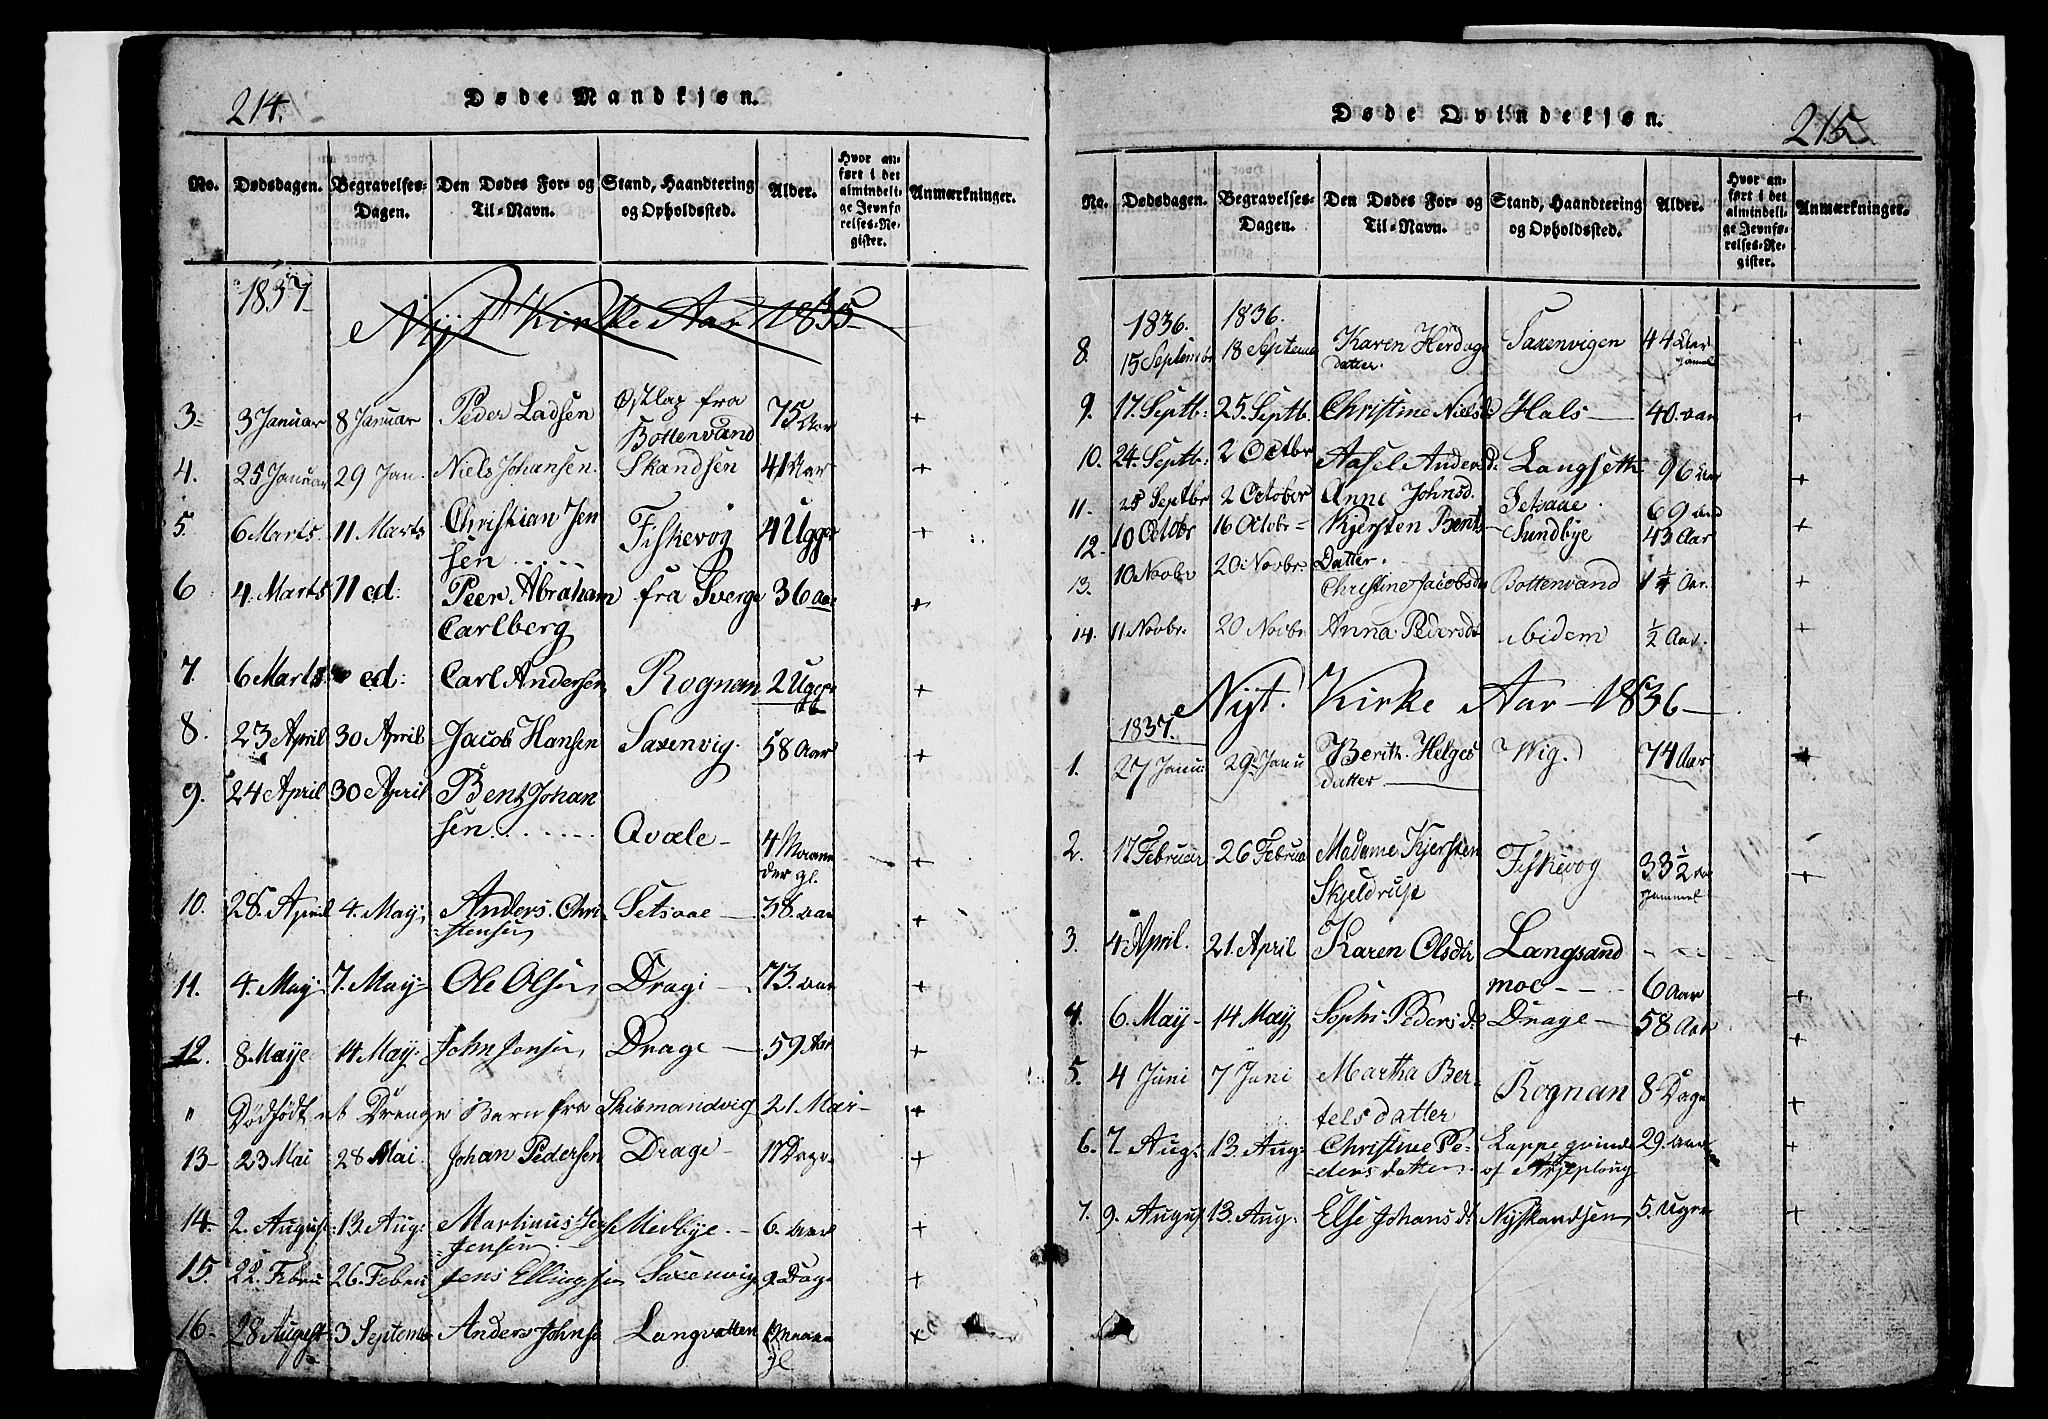 214.
Døde Mandkjøn.
No. Dødsdagen. Begravelses-Dagen. Den Dødes For- og Til-Navn. Stand, Haandtering og Opholdssted. Alder. Hvor anført i det almindelige Jevnførelses-Register. Anmærkninger.
1837
Nijt Kirke Aar 1835
3 3 Januar 8 Januar Peder Ladsen Ostlap fra Bottenvand 75 Aar +
4. 25 Januar 29 Jan. Niels Johansen. Skandsen 41 Aar +
5. 6 Marts 11 Marts Christian Jensen Fiskevog 4 Ugger +
6 4. Marts 11 ed: Peer Abraham Carlberg fra Sverge 36 aar +
7. 6 Marts ed: Carl Andersen Rognan 2 Uger +
8. 23 April 30 April Jacob Hansen Saxenvig. 58 Aar +
9. 24 April 30 April Bent Johansen Qvæle 4 Maaneder gl. +
10. 28. April 4. May Anders. Christensen Setsaae 38. aar +
11. 4. May 7. May Ole Olsen Dragi 73. aar +
12. 8 Maye 14 May John Jonsen Drage 59 Aar +
" Dödfödt et Drenge Barn fra Skibmandvig 21 Mar- +
13 23 Mai 28 Mai. Johan Pedersen Drage 17 Dage +
14 2. August 13. Aug: Martinus Jensen Medbye. 6. aar +
15. 22. Febru 26. Febru Jens Ellingsen Saxenvig 9 Dage +
16 28 August 3 Septemb Anders Johns Langvatten Maan gl +
Døde Qvindekjøn.
215.
No. Dødsdagen. Begravelses-Dagen. Den Dødes For- og Til-Navn. Stand, Haandtering og Opholdssted. Alder. Hvor anført i det almindelige Jevnførelses-Register. Anmærkninger.
1836. 1836.
8. 15 Septembr 18 Septemb Karen Herdagdatter. Saxenvigen 44 Aar gamel
9. 17. Septb: 25. Septb. Christine Nielsd Hals 40. aar +
10. 24. Septb: 2 Octbr Aasel Andersd. Langseth 96 Aar +
11. 25 Septbr 2 October Anne Johnsd. Setsaae. 69 aar
12. 10 Octobr 16 Octobr Kjersten Bentsdatter. Sundbye 43 Aar +
13. 10 Novbr 20 Novbr Christine Jacobsd Bottenvand 1¼ Aar. +
14. 11 Novbr. 20 Novbr Anna Pedersd ibidem ½ Aar. +
Nijt. Kirke Aar 1836
1837.
1. 27 Janu 29 Janu Berith. Helgesdatter Wig. 74 Aar +
2. 17 Februar 26 Februa Madame Kjersten Skjeldrup Fiskevog 33½ Aar gammel +
3. 4 April. 21. April Karen Olsdtr Langsandmoe 6 Aar +
4. 6. May 14 May Sophi Pedersd: Drage 58 Aar +
5. 4 Juni 7 Juni Martha Bertelsdatter Rognan 8 Dage +
6. 7. Aug: 13. Aug: Christine Pedersdatter Lappe qvinde af Arjeploug 29. aar +
7. 9. August 13. Aug: Else Johansd: Nyskandsen 5. Uger +